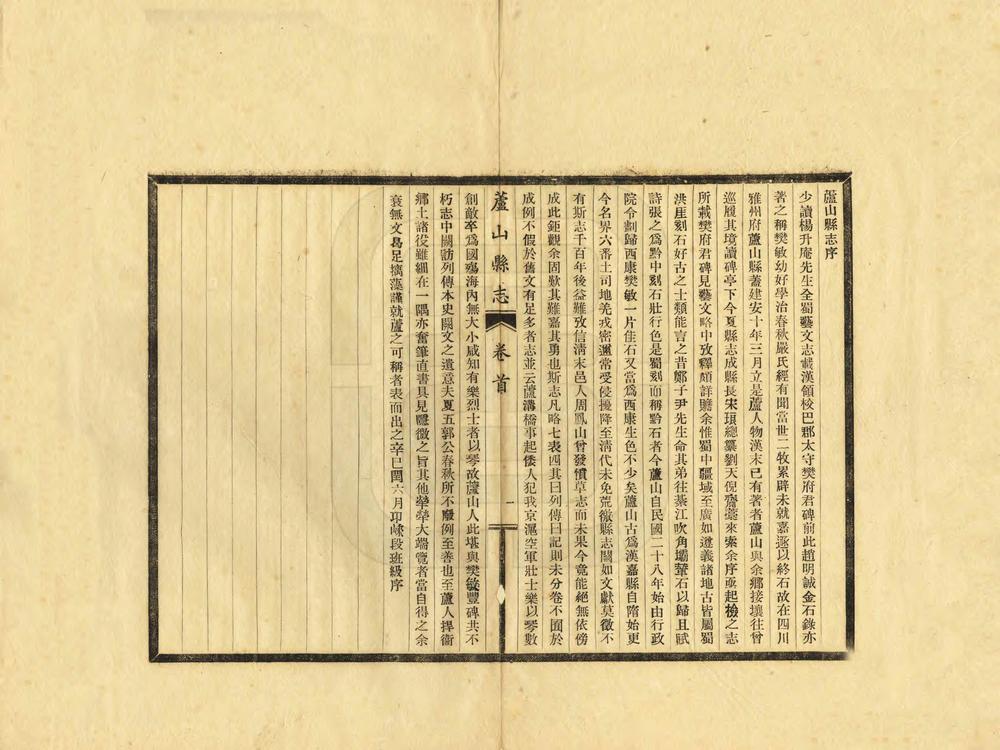 蘆山縣志序
少讀楊升庵先生全蜀藝文志載漢領校巴郡太守樊府君碑前此趙明誠金石錄亦
著之稱樊敏幼好學治春秋嚴氏經有聞當世二牧累辟未就嘉遯以終石故在四川
雅州府蘆山縣蓋建安十年三月立是蘆人物漢末已有著者蘆山與余鄉接壤往曾
巡履其境讀碑亭下今夏縣志成縣長宋琅總纂劉天倪齎藁來索余序亟起檢之志
所載樊府君碑見藝文略中攷釋頗詳贍余惟蜀中疆域至廣如遵義諸地古皆屬蜀
洪厓刻石好古之士類能言之昔鄭子尹先生命其弟往綦江吹角壩輦石以歸且賦
詩張之爲黔中刻石壯行色是蜀刻而稱黔石者今蘆山自民國二十八年始由行政
院令劃歸西康樊敏一片佳石又當爲西康生色不少矣蘆山古爲漢嘉縣自隋始更
今名界六番土司地羌戎密邇常受侵擾降至清代未免荒徼縣志闕如文獻莫徵不
有斯志千百年後益難攷信清末邑人周鳳山曾發憤草志而未果今竟能絕無依傍
成此鉅觀余固歎其難嘉其勇也斯志凡略七表四其曰列傳曰記則未分卷不囿於
成例不假於舊文有足多者志並云蘆溝橋事起倭人犯我京滬空軍壯士樂以琴數
蘆山縣志 卷首 一
創敵卒爲國殤海內無大小咸知有樂烈士者以琴故蘆山人此堪與樊敏豐碑共不
朽志中關訪列傳本史闕文之遺意夫夏五郭公春秋所不廢例至善也至蘆人捍衞
鄉土諸役雖細在一隅亦奮筆直書具見隱徵之旨其他犖犖大端覽者當自得之余
衰無文曷足摛藻謹就蘆之可稱者表而出之辛巳閏六月邛崍段班級序